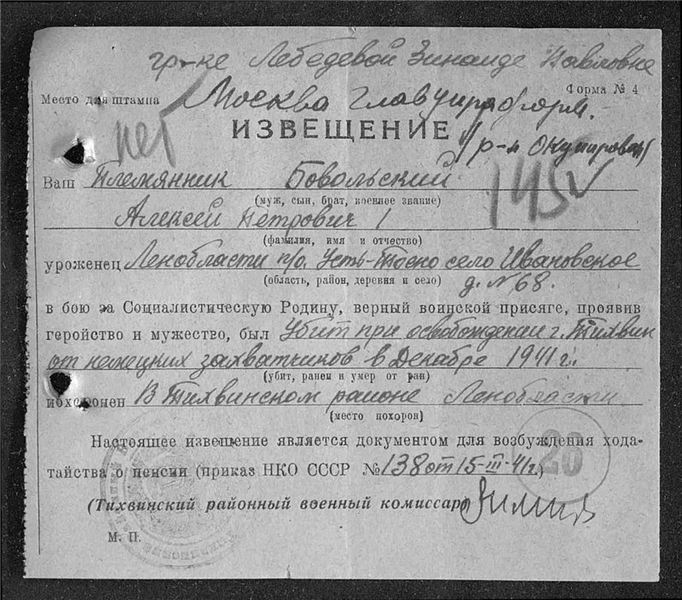 гр-ке Лебедевой Зинаиде Павловне
Место для штампа
Форма № 4
Москва Главуправформ.
нет
ИЗВЕЩЕНИЕ
р-н окупирован
Ваш Племянник Бовольский
145
(муж, сын, брат, военнее звание)
Алексей Петрович
(фамилия, имя и отчество)
уроженец Ленобласти п/о. Усть-Тосно село Ивановское
(область, район, деревня и село)
д. № 68.
в бою за Социалистическую Родину, верный воинской присяге, проявив
геройство и мужество, был Убит при освобождении г. Тихвин
от немецких захватчиков в Декабре 1941 г.
(убит, ранен и умер от ран)
похоронен В Тихвинском районе Ленобласти
(место похорон)
Настоящее извещение является документом для возбуждения хода-
тайства о пенсии (приказ НКО СССР № 138 от 15-III-41 г.)
20
(Тихвинский районный военный комиссар) Зимин
М. П.